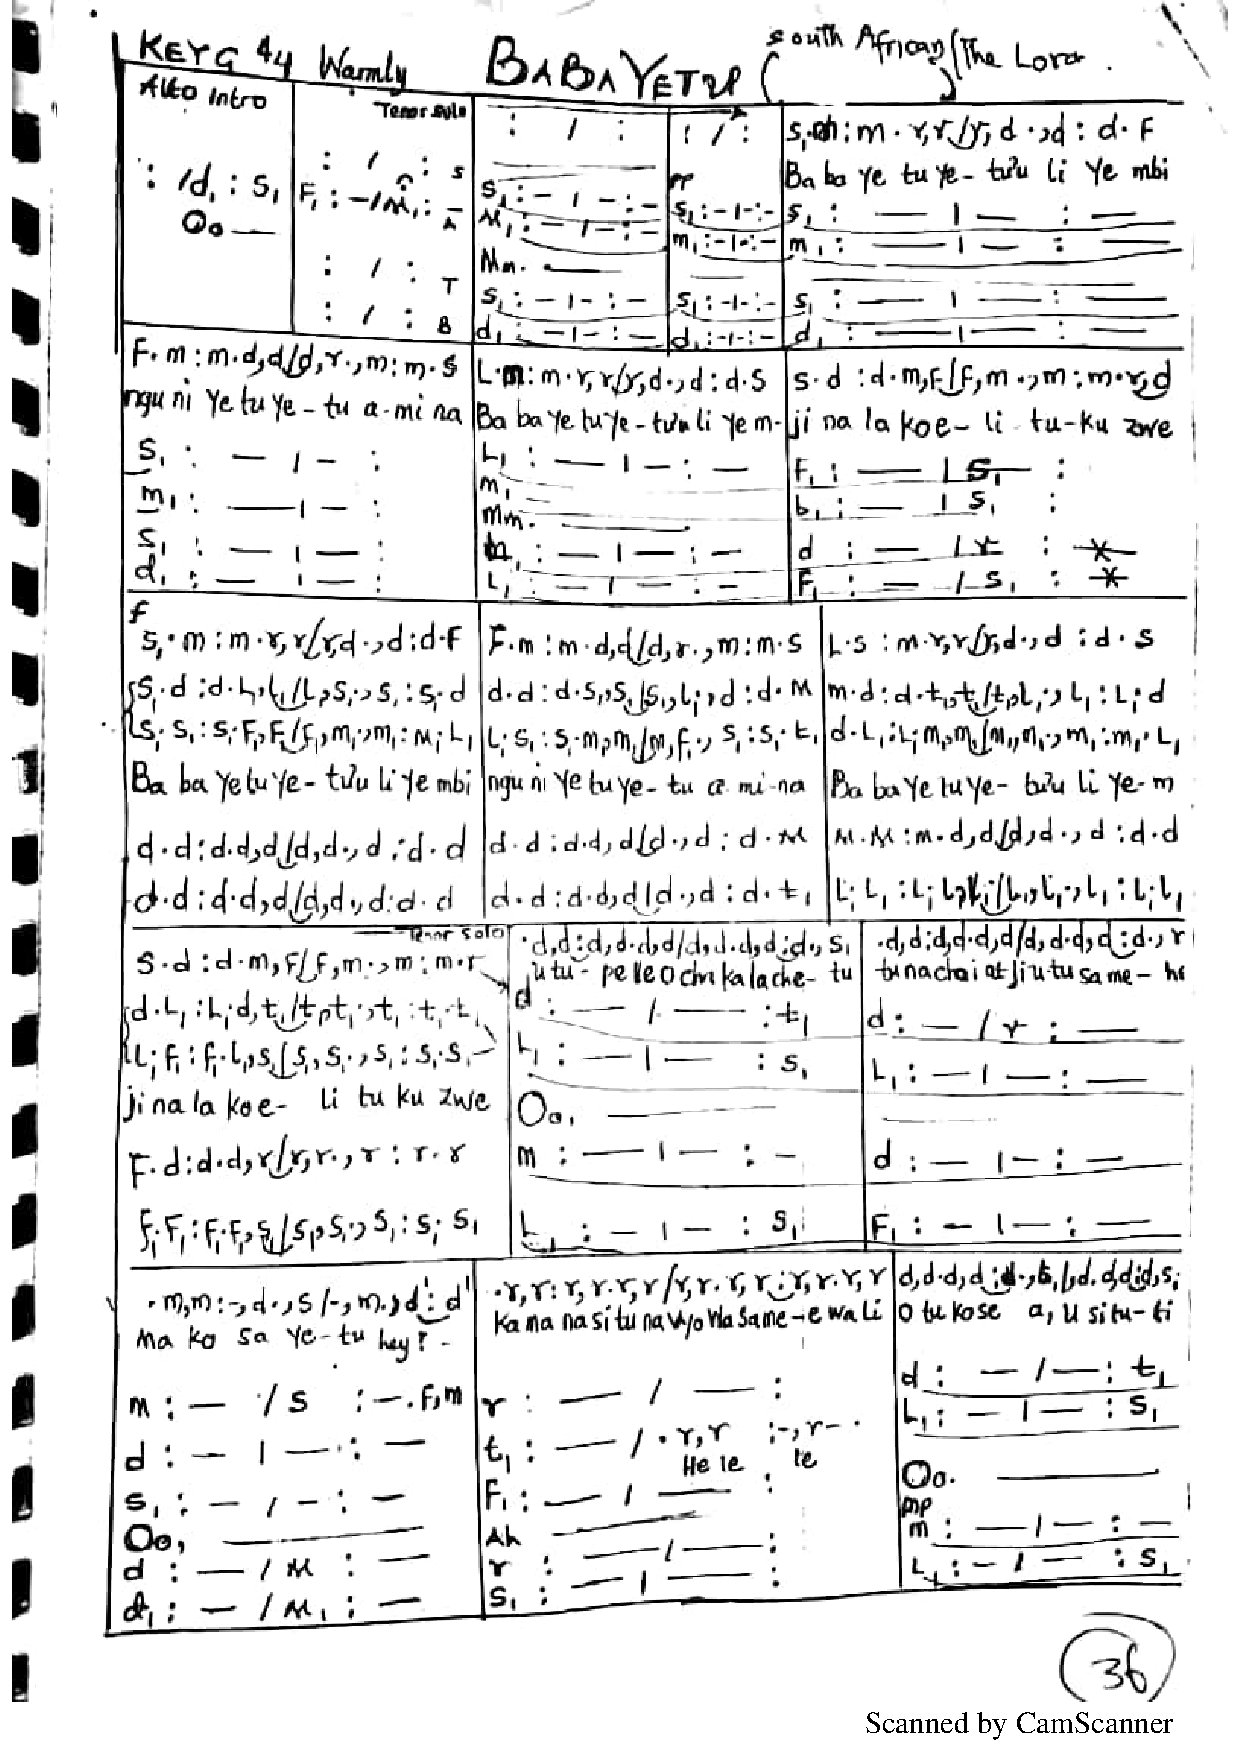 KEY G 4/4 Warmly BABA YETU (South African/The Lord
Alto Intro
: /d₁ : s₁
Oo —
Tenor Solo
: / : s
F₁ : – / M₁ : – A
: / : T
: / : B
: / :
s₁ : – | – : –
M₁ : – | – : –
Mm. —
s₁ : – | – : –
d₁ : – | – : –
: / :
pp
s₁ : – | – : –
m₁ : – | – : –
s₁ : – | – : –
d₁ : – | – : –
: m · r,r/r, d ·,d : d · F
Ba ba Ye tu Ye - tuu li Ye mbi
s₁ : — | — : —
m₁ : — | — : —
s₁ : — | — : —
d₁ : — | — : —
F · m : m · d,d/d,r ·,m : m · s
ngu ni Ye tu Ye - tu a - mi na
s₁ : — | – :
m₁ : — | – :
s₁ : — | — :
d₁ : — | — :
L · m : m · r,r/r,d ·,d : d · s
Ba ba Ye tu Ye - tuu li Ye m-
L₁ : — | – : –
m₁
Mm.
: — | – : –
L₁ : — | – : –
s · d : d · m,F/F,m ·,m : m · r,d
ji na la ko e - li tu - ku zwe
F₁ : — | s₁ :
: — | s₁ :
d : — | r :
F₁ : — / s₁ :
f
s₁ · m : m · r,r/r,d ·,d : d · F
s₁ · d : d · L₁,L₁/L₁,s₁ ·,s₁ : s₁ · d
s₁ · s₁ : s₁ · F₁,F₁/F₁,m₁ ·,m₁ : M₁ · L₁
Ba ba Ye tu Ye - tuu li Ye mbi
d · d : d · d,d/d,d ·,d : d · d
d · d : d · d,d/d,d ·,d : d · d
F · m : m · d,d/d,r ·,m : m · s
d · d : d · s₁,s₁/s₁,L₁ ·,d : d · M
L₁ · s₁ : s₁ · m₁,m₁/m₁,F₁ ·, s₁ : s₁ · t₁
ngu ni Ye tu Ye - tu a mi - na
d · d : d · d, d/d ·,d : d · M
d · d : d · d,d/d ·,d : d · t₁
L · s : m · r,r/r,d ·,d : d · s
m · d : d · t₁,t₁/t₁,L₁ ·, L₁ : L₁ · d
d · L₁ : L₁ · m₁,m₁/m₁,m₁ ·, m₁ : m₁ · L₁
Ba ba Ye tu Ye - tuu li Ye - m
M · M : m · d,d/d,d ·, d : d · d
L₁ · L₁ : L₁ · L₁,L₁/L₁,L₁ ·, L₁ : L₁ · L₁
Tenor Solo
s · d : d · m,F/F,m ·,m : m · r
d · L₁ : L₁ · d,t₁/t₁,t₁ ·,t₁ : t₁ · t₁
L₁ · F₁ : F₁ · L₁,s₁/s₁,s₁ ·,s₁ : s₁ · s₁
ji na la ko e - li tu ku zwe
F · d : d · d,r/r,r ·,r : r · r
F₁ · F₁ : F₁ · F₁,s₁/s₁,s₁ ·,s₁ : s₁ · s₁
· d,d : d,d · d,d/d,d · d,d : d ·, s₁
utu - pe le o cha ka la che - tu
d : — / — : t₁
L₁ : — | — : s₁
Oo, —
m : — | – : –
L₁ : – | – : s₁
· d,d : d,d · d,d/d,d · d,d : d ·, r
tu na ji utu same - he
d : — / r : —
L₁ : — | — : —
d : — | – : –
F₁ : – | — : —
· m,m : -,d ·,s /-, m ·,d' : d'
Ma ko sa Ye - tu hey! -
m : — / s : – · F,m
d : – | — : —
s₁ : – / – : –
Oo, —
d : — / M : —
d₁ : — / M₁ : —
· r,r : r,r · r,r /r,r · r,r : r,r · r,r
ka na na si tu na vyo wa same - e wa li
r : — / — :
t₁ : — / · r,r : -,r – ·
He le le
F₁ : — / — :
Ah —
r : — / — :
s₁ : — | — :
O tu kose a, U si tu - ti
d : — / — : t₁
L₁ : — | — : s₁
Oo. —
mp
m : — | — : –
L₁ : – / — : s₁
36
Scanned by CamScanner